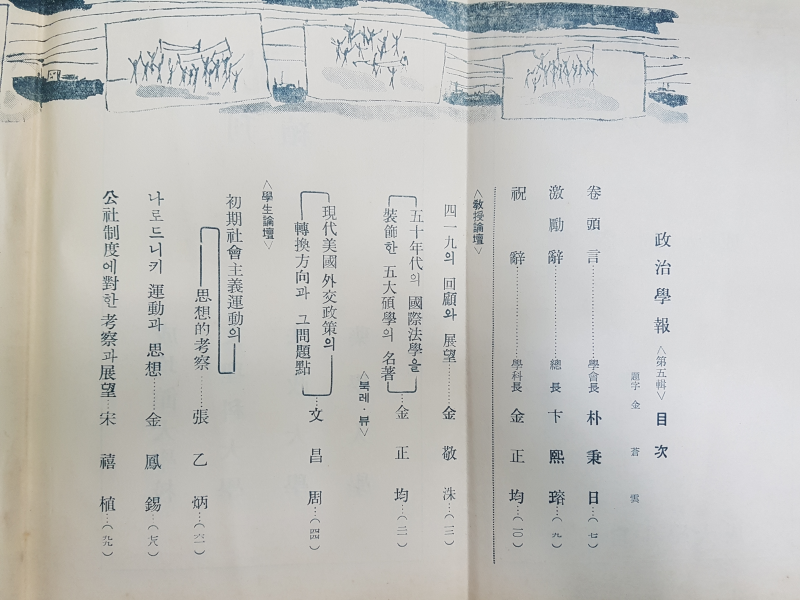 政治學報 <第五輯> 目次
題字 金蒼雲
卷頭言……………學會長 朴秉日…(七)
激勵辭……………總長 卞熙瑢…(九)
祝辭……………學科長 金正均…(一〇)
<敎授論壇>
四一九의 回顧와 展望………金敬洙…(一三)
五十年代의 國際法學을
裝飾한 五大碩學의 名著……金正均…(二一)
<북레·뷰>
現代美國外交政策의
轉換方向과 그 問題點……文昌周…(四四)
<學生論壇>
初期社會主義運動의
思想的考察………張乙炳…(六一)
나로드니키 運動과 思想……金鳳錫…(七八)
公社制度에對한 考察과展望……宋禧植…(九九)